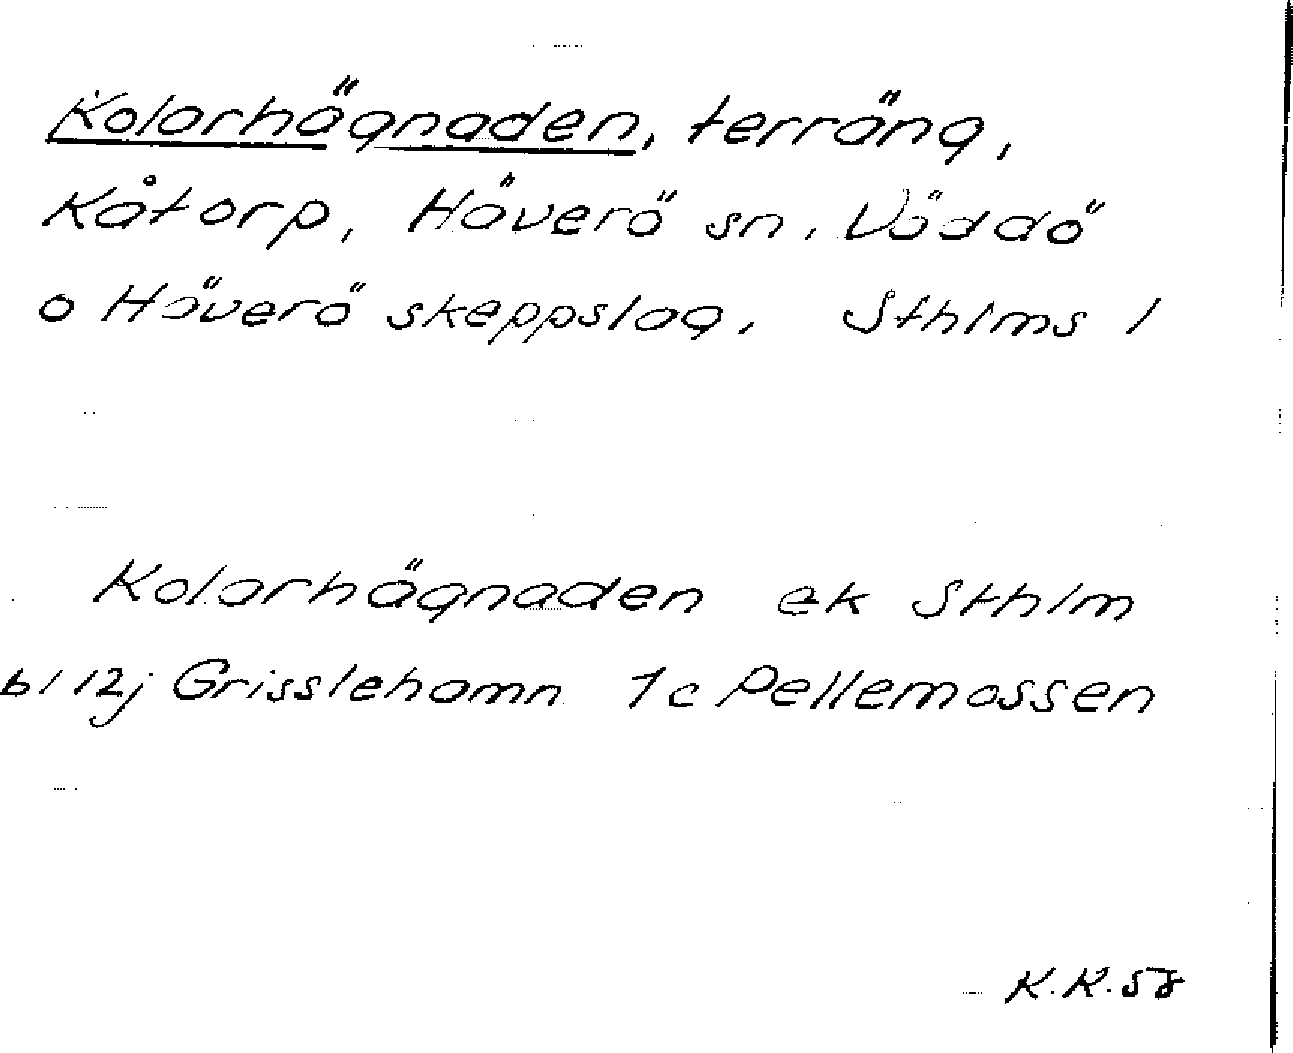 Kolarhägnaden, terräng,
Kåtorp, Häverö sn, Väddö
o Häverö skeppslag, Sthlms l
Kolarhägnaden ek Sthlm
bl 12j Grisslehamn 1c Pellemossen
K.K.58